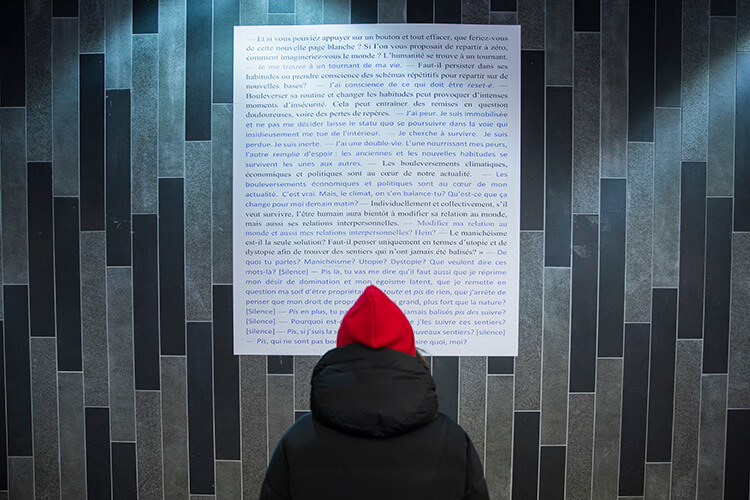 — Et si vous pouviez appuyer sur un bouton et tout effacer, que feriez-vous
de cette nouvelle page blanche ? Si l'on vous proposait de repartir à zéro,
comment imagineriez-vous le monde ? L'humanité se trouve à un tournant.
— Je me trouve à un tournant de ma vie. — Faut-il persister dans ses
habitudes ou prendre conscience des schémas répétitifs pour repartir sur de
nouvelles bases? — J'ai conscience de ce qui doit être reset-é. —
Bouleverser sa routine et changer les habitudes peut provoquer d'intenses
moments d'insécurité. Cela peut entraîner des remises en question
douloureuses, voire des pertes de repères. — J'ai peur. Je suis immobilisée
et ne pas me décider laisse le statu quo se poursuivre dans la voie qui
insidieusement me tue de l'intérieur. — Je cherche à survivre. Je suis
perdue. Je suis inerte. — J'ai une double-vie. L'une nourrissant mes peurs,
l'autre remplie d'espoir : les anciennes et les nouvelles habitudes se
survivent les unes aux autres. — Les bouleversements climatiques,
économiques et politiques sont au cœur de notre actualité. — Les
bouleversements économiques et politiques sont au cœur de mon
actualité. C'est vrai. Mais, le climat, on s'en balance-tu? Qu'est-ce que ça
change pour moi demain matin? — Individuellement et collectivement, s'il
veut survivre, l'être humain aura bientôt à modifier sa relation au monde,
mais aussi ses relations interpersonnelles. — Modifier ma relation au
monde et aussi mes relations interpersonnelles? Hein? — Le manichéisme
est-il la seule solution? Faut-il penser uniquement en termes d'utopie et de
dystopie afin de trouver des sentiers qui n'ont jamais été balisés? » — De
quoi tu parles? Manichéisme? Utopie? Dystopie? Que veulent dire ces
mots-là? [Silence] — Pis là, tu vas me dire qu'il faut aussi que je réprime
mon désir de domination et mon égoïsme latent, que je remette en
question ma soif d'être propriétaire route et pis de rien, que j'arrête de
penser que mon droit de grand, plus fort que la nature?
[Silence] — Pis en plus, tu jamais balisés pis des suivre?
[Silence] — Pourquoi j'les suivre ces sentiers?
[silence] — Pis, si j'suis la nouveaux sentiers? [silence]
— Pis, qui ne sont pas faire quoi, moi?